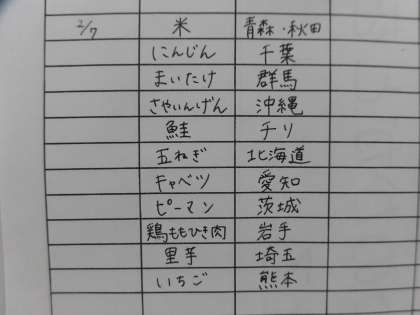 2/7 米 青森・秋田
にんじん 千葉
まいたけ 群馬
さやいんげん 沖縄
鮭 チリ
玉ねぎ 北海道
キャベツ 愛知
ピーマン 茨城
鶏ももひき肉 岩手
里芋 埼玉
いちご 熊本